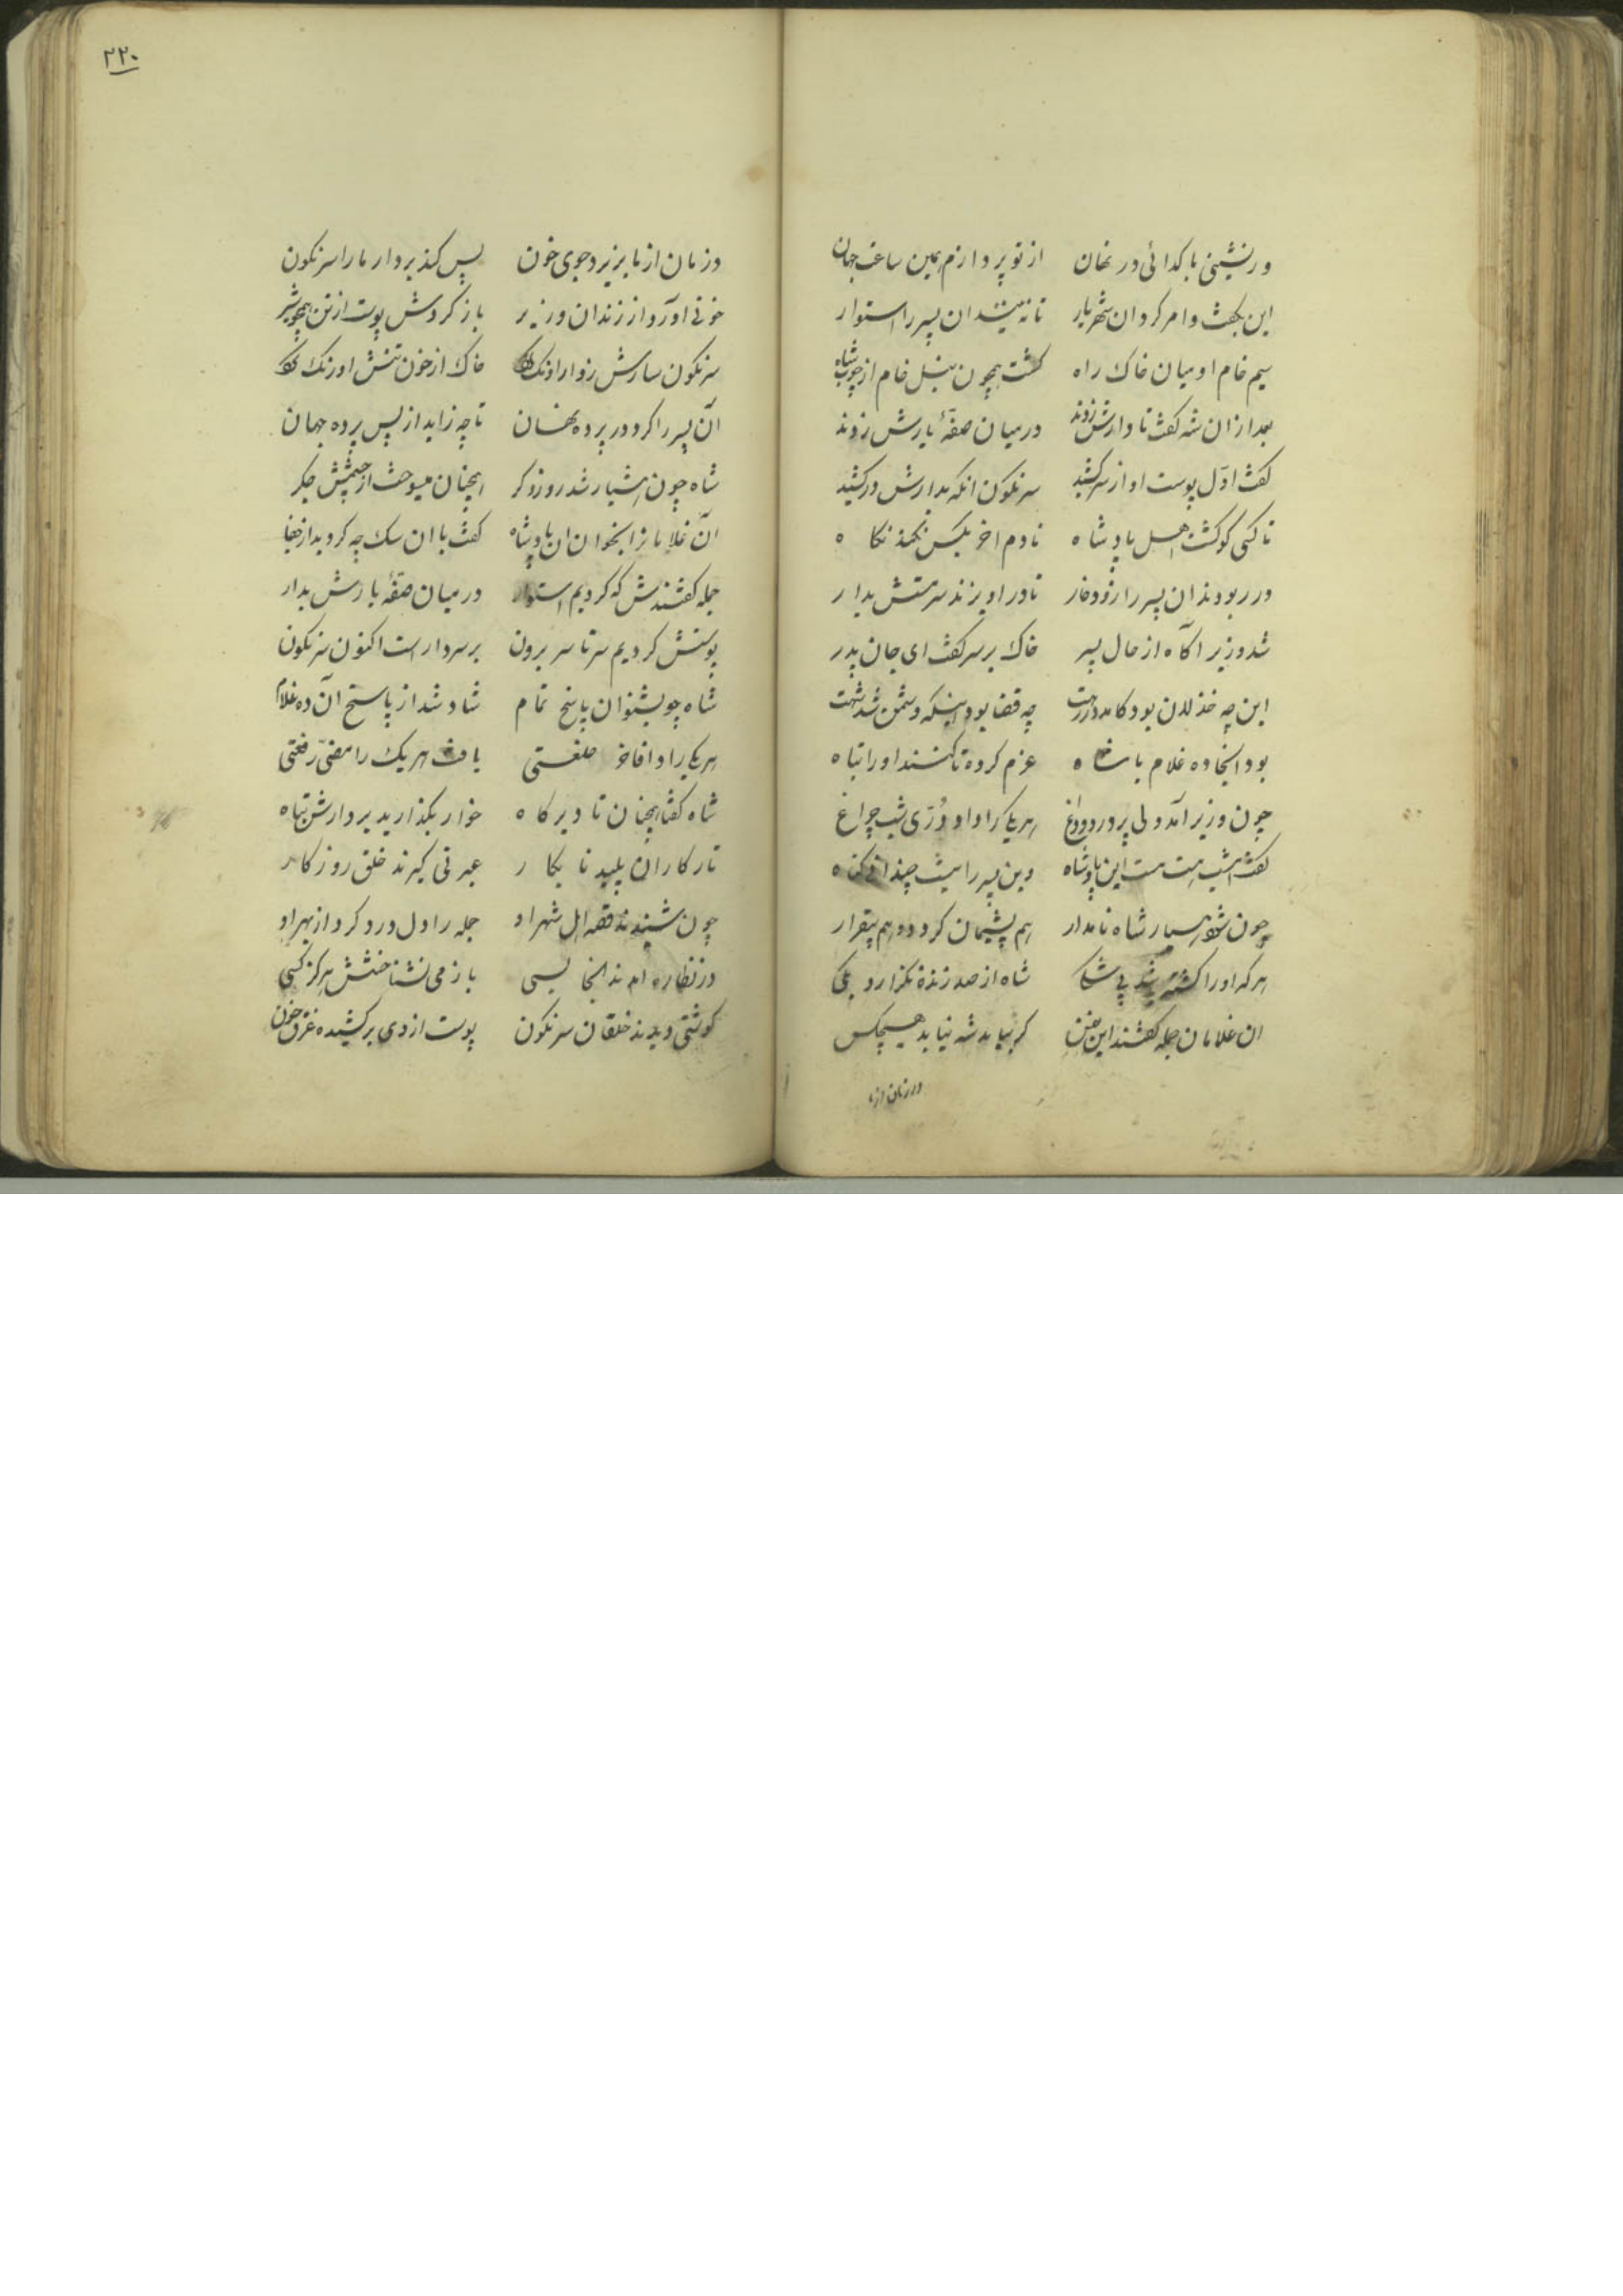 ور نشینی با کدائی در نهان از تو پردازم همین ساعت جهان
این بگفت و امر کرد ان شهریار تا ببندند ان پسر را استوار
سیم خام او میان خاک راه کشت همچون نیل خام از چوب شاه
بعد ازان شه کفت تا دارش زدند در میان صفهٔ بارش زدند
کفت اوّل پوست او از سر کشید سرنکون انکه بدارش درکشید
تا کسی کو کشت اهل پادشاه تا دم اخر بکس نکند نکاه
در ربودند ان پسر را زود خار تا در اویزند سرمستش بدار
شد وزیر آکاه از حال پسر خاک بر سر کفت ای جان پدر
این چه خذلان بود کامد در رهت چه قضا بود اینکه دشمن شد شهت
بود انجا ده غلام پادشاه عزم کرده تا کنند او را تباه
چون وزیر آمد دلی پر درد و داغ هر یکی را داد دُرّی شب چراغ
کفت امشب هست مست این پادشاه وین پسر را نیست چندانی کناه
چون شود هشیار شاه نامدار هم پشیمان کردد و هم بیقرار
هر که او را کشته باشد بی شکی شاه از صد زنده نکذارد یکی
ان غلامان جمله کفتند این نفس کر بیاید شه نیابد هیچکس
در زمان از ما
۲۲۰
در زمان از ما بریزد جوی خون پس کند بر دار ما را سرنکون
خونئی اورد از زندان وزیر باز کردش پوست از تن همچو سیر
سرنکون سارش ز دار اونک کرد خاک از خون تنش اورنک کرد
آن پسر را کرد در پرده نهان تا چه زاید از پس پرده جهان
شاه چون هشیار شد روز دکر همچنان میسوخت از خشمش جکر
آن غلامانرا بخواند ان پادشاه کفت با ان سک چه کردید از جفا
جمله کفتندش که کردیم استوار در میان صفهٔ بارش بدار
پوستش کردیم سر تا سر برون بر سر دار است اکنون سرنکون
شاه چو بشنود ان پاسخ تمام شاد شد از پاسخ آن ده غلام
هر یکی را داد فاخر خلعتی یافت هر یک را منصبی رفعتی
شاه کفتا همچنان تا دیرکاه خوار بکذارید بر دارش تباه
تا ز کار ان پلید نابکار عبرتی کیرند خلق روزکار
چون شنیدند قصه اهل شهر او جمله را دل درد کرد از بهر او
در نظاره امدند انجا بسی باز می نشناختش هرکز کسی
کوشتی دیدند خلقان سرنکون پوست از وی برکشیده غرق خون